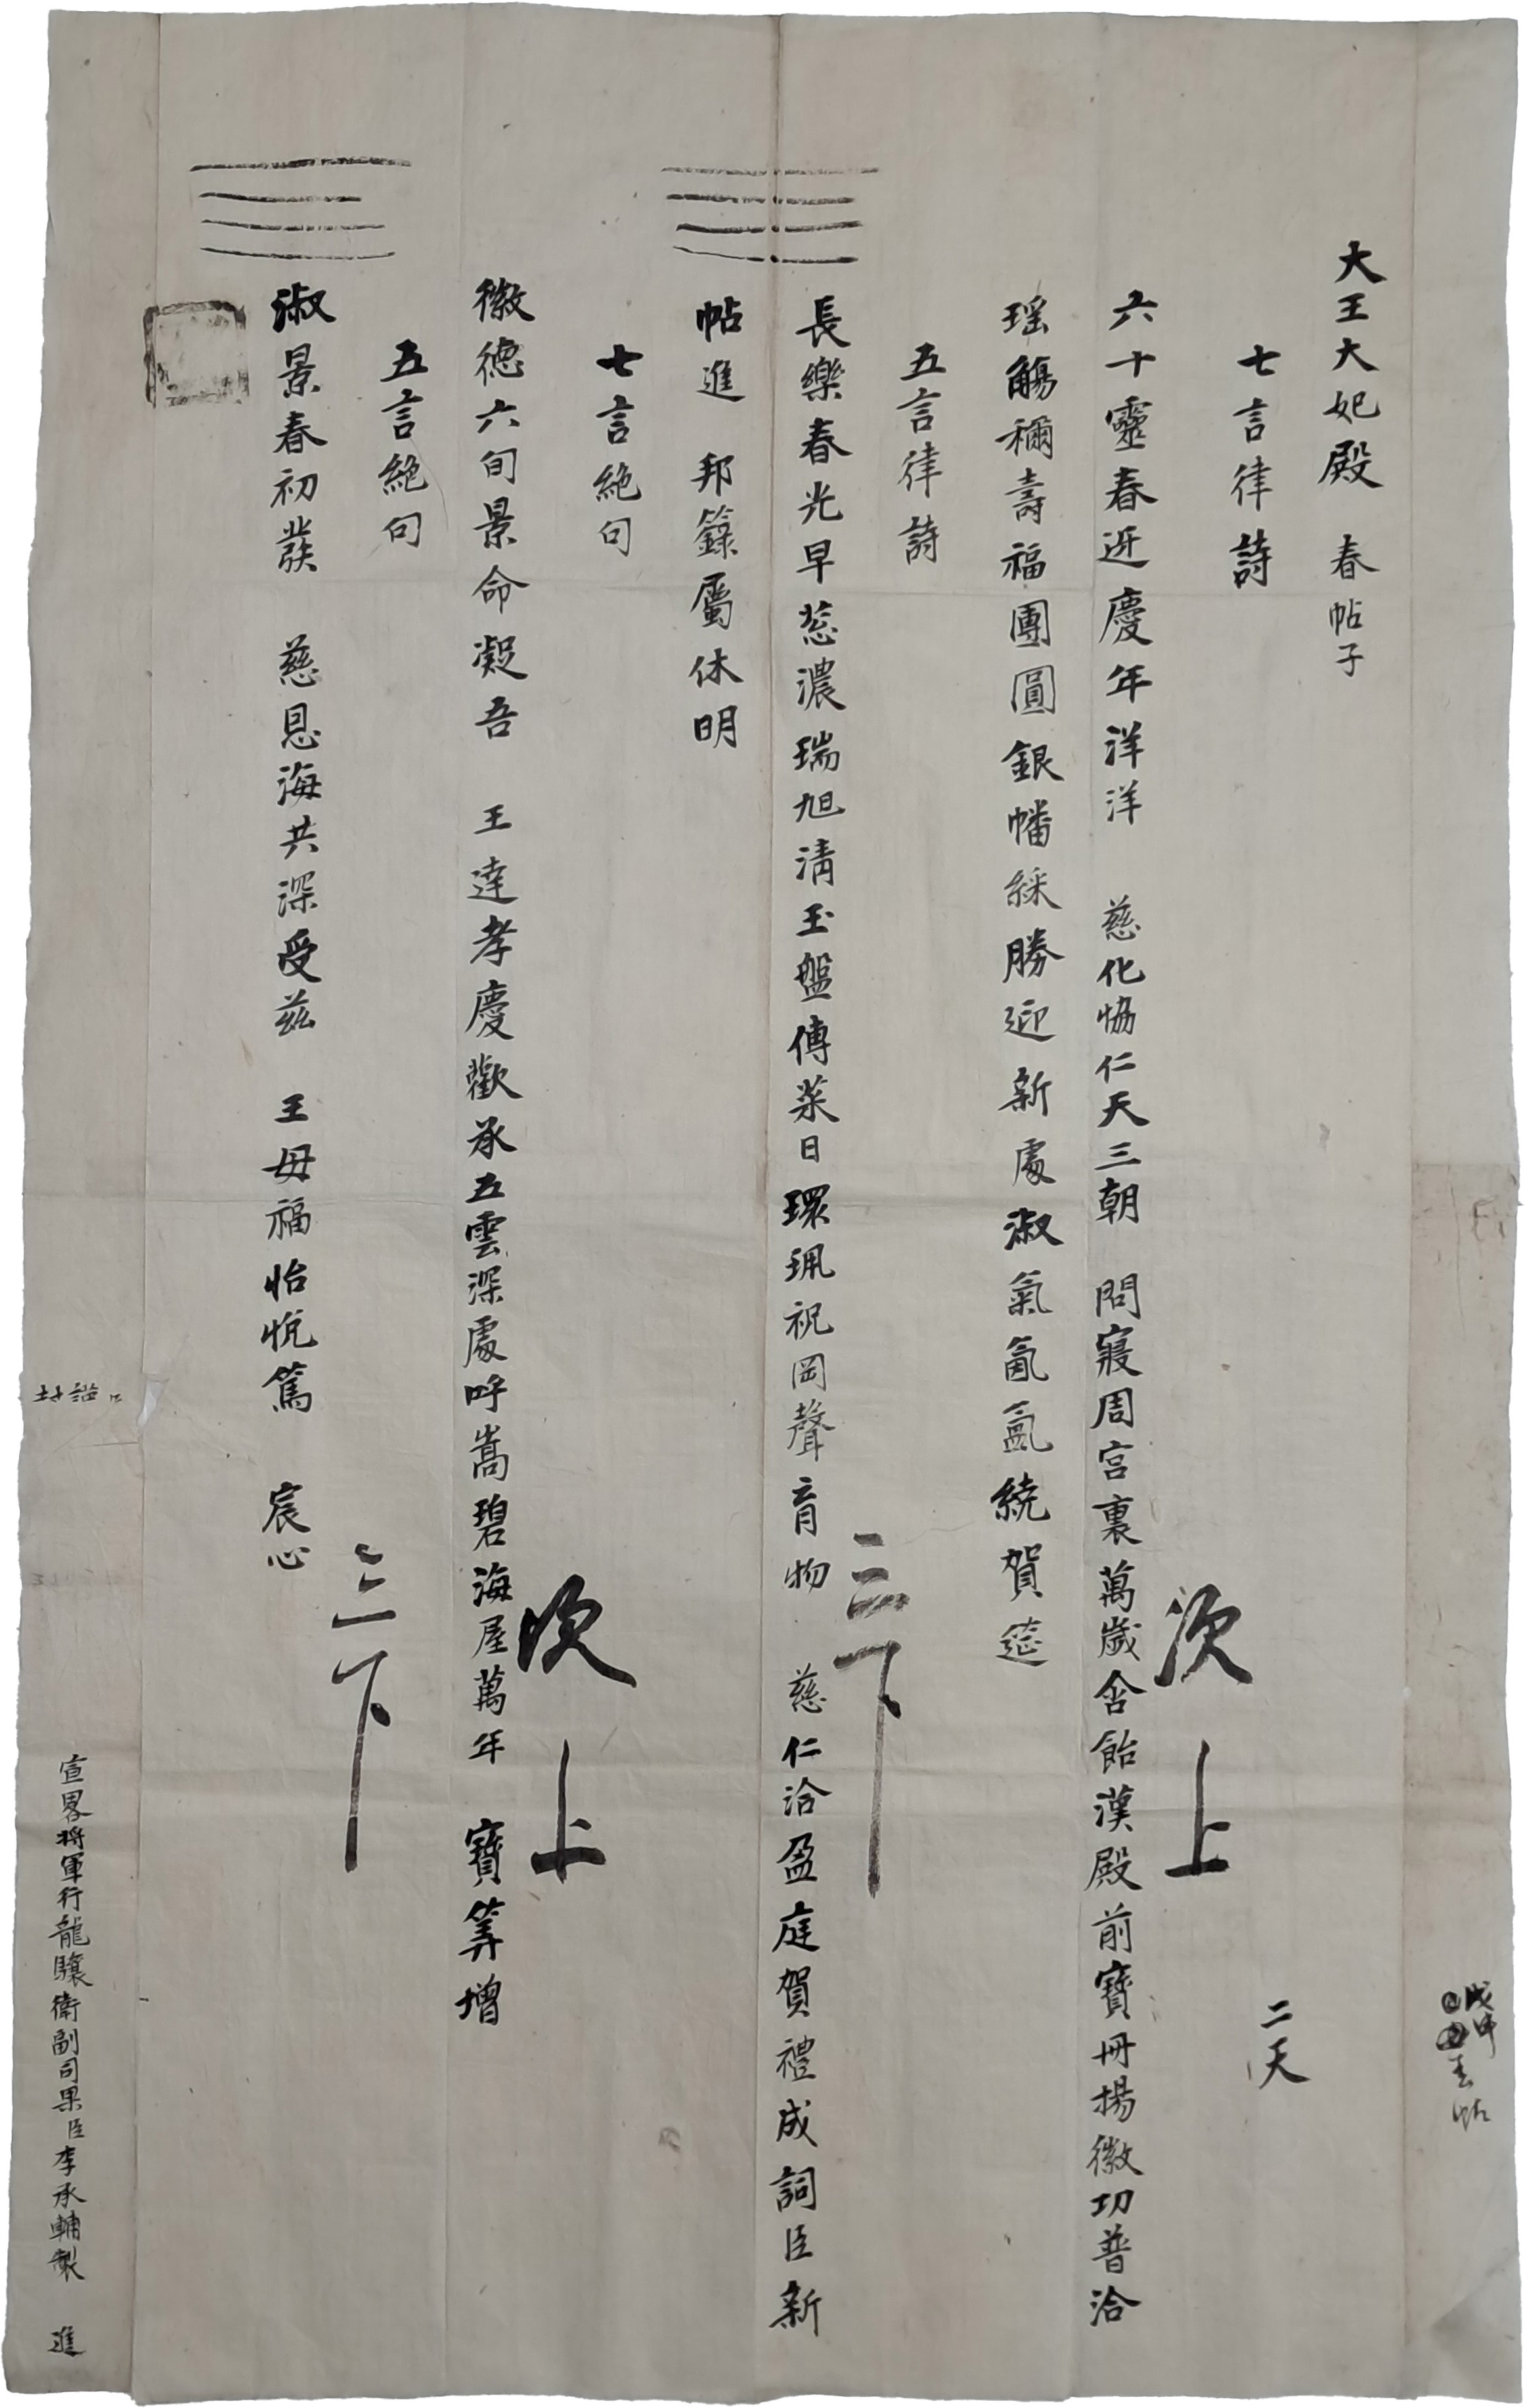 戊申
春帖
大王大妃殿 春帖子
七言律詩
二天
次上
六十靈春迓慶年洋洋 慈化協仁天三朝 問寢周宮裏萬歲含飴漢殿前寶冊揚徽功普洽
瑤觴禰壽福團圓銀幡綵勝迎新處淑氣氤氳繞賀筵
五言律詩
三下
長樂春光早慈濃瑞旭清玉盤傳菜日環珮祝岡聲育物 慈仁洽盈庭賀禮成詞臣新
帖進 邦籙屬休明
七言絶句
次上
徽德六旬景命凝吾 王達孝慶歡承五雲深處呼嵩碧海屋萬年 寶筭增
五言絶句
三下
淑景春初發 慈恩海共深受玆 王母福怡悅篤 宸心
宣畧將軍行龍驤衛副司果臣李承輔製 進